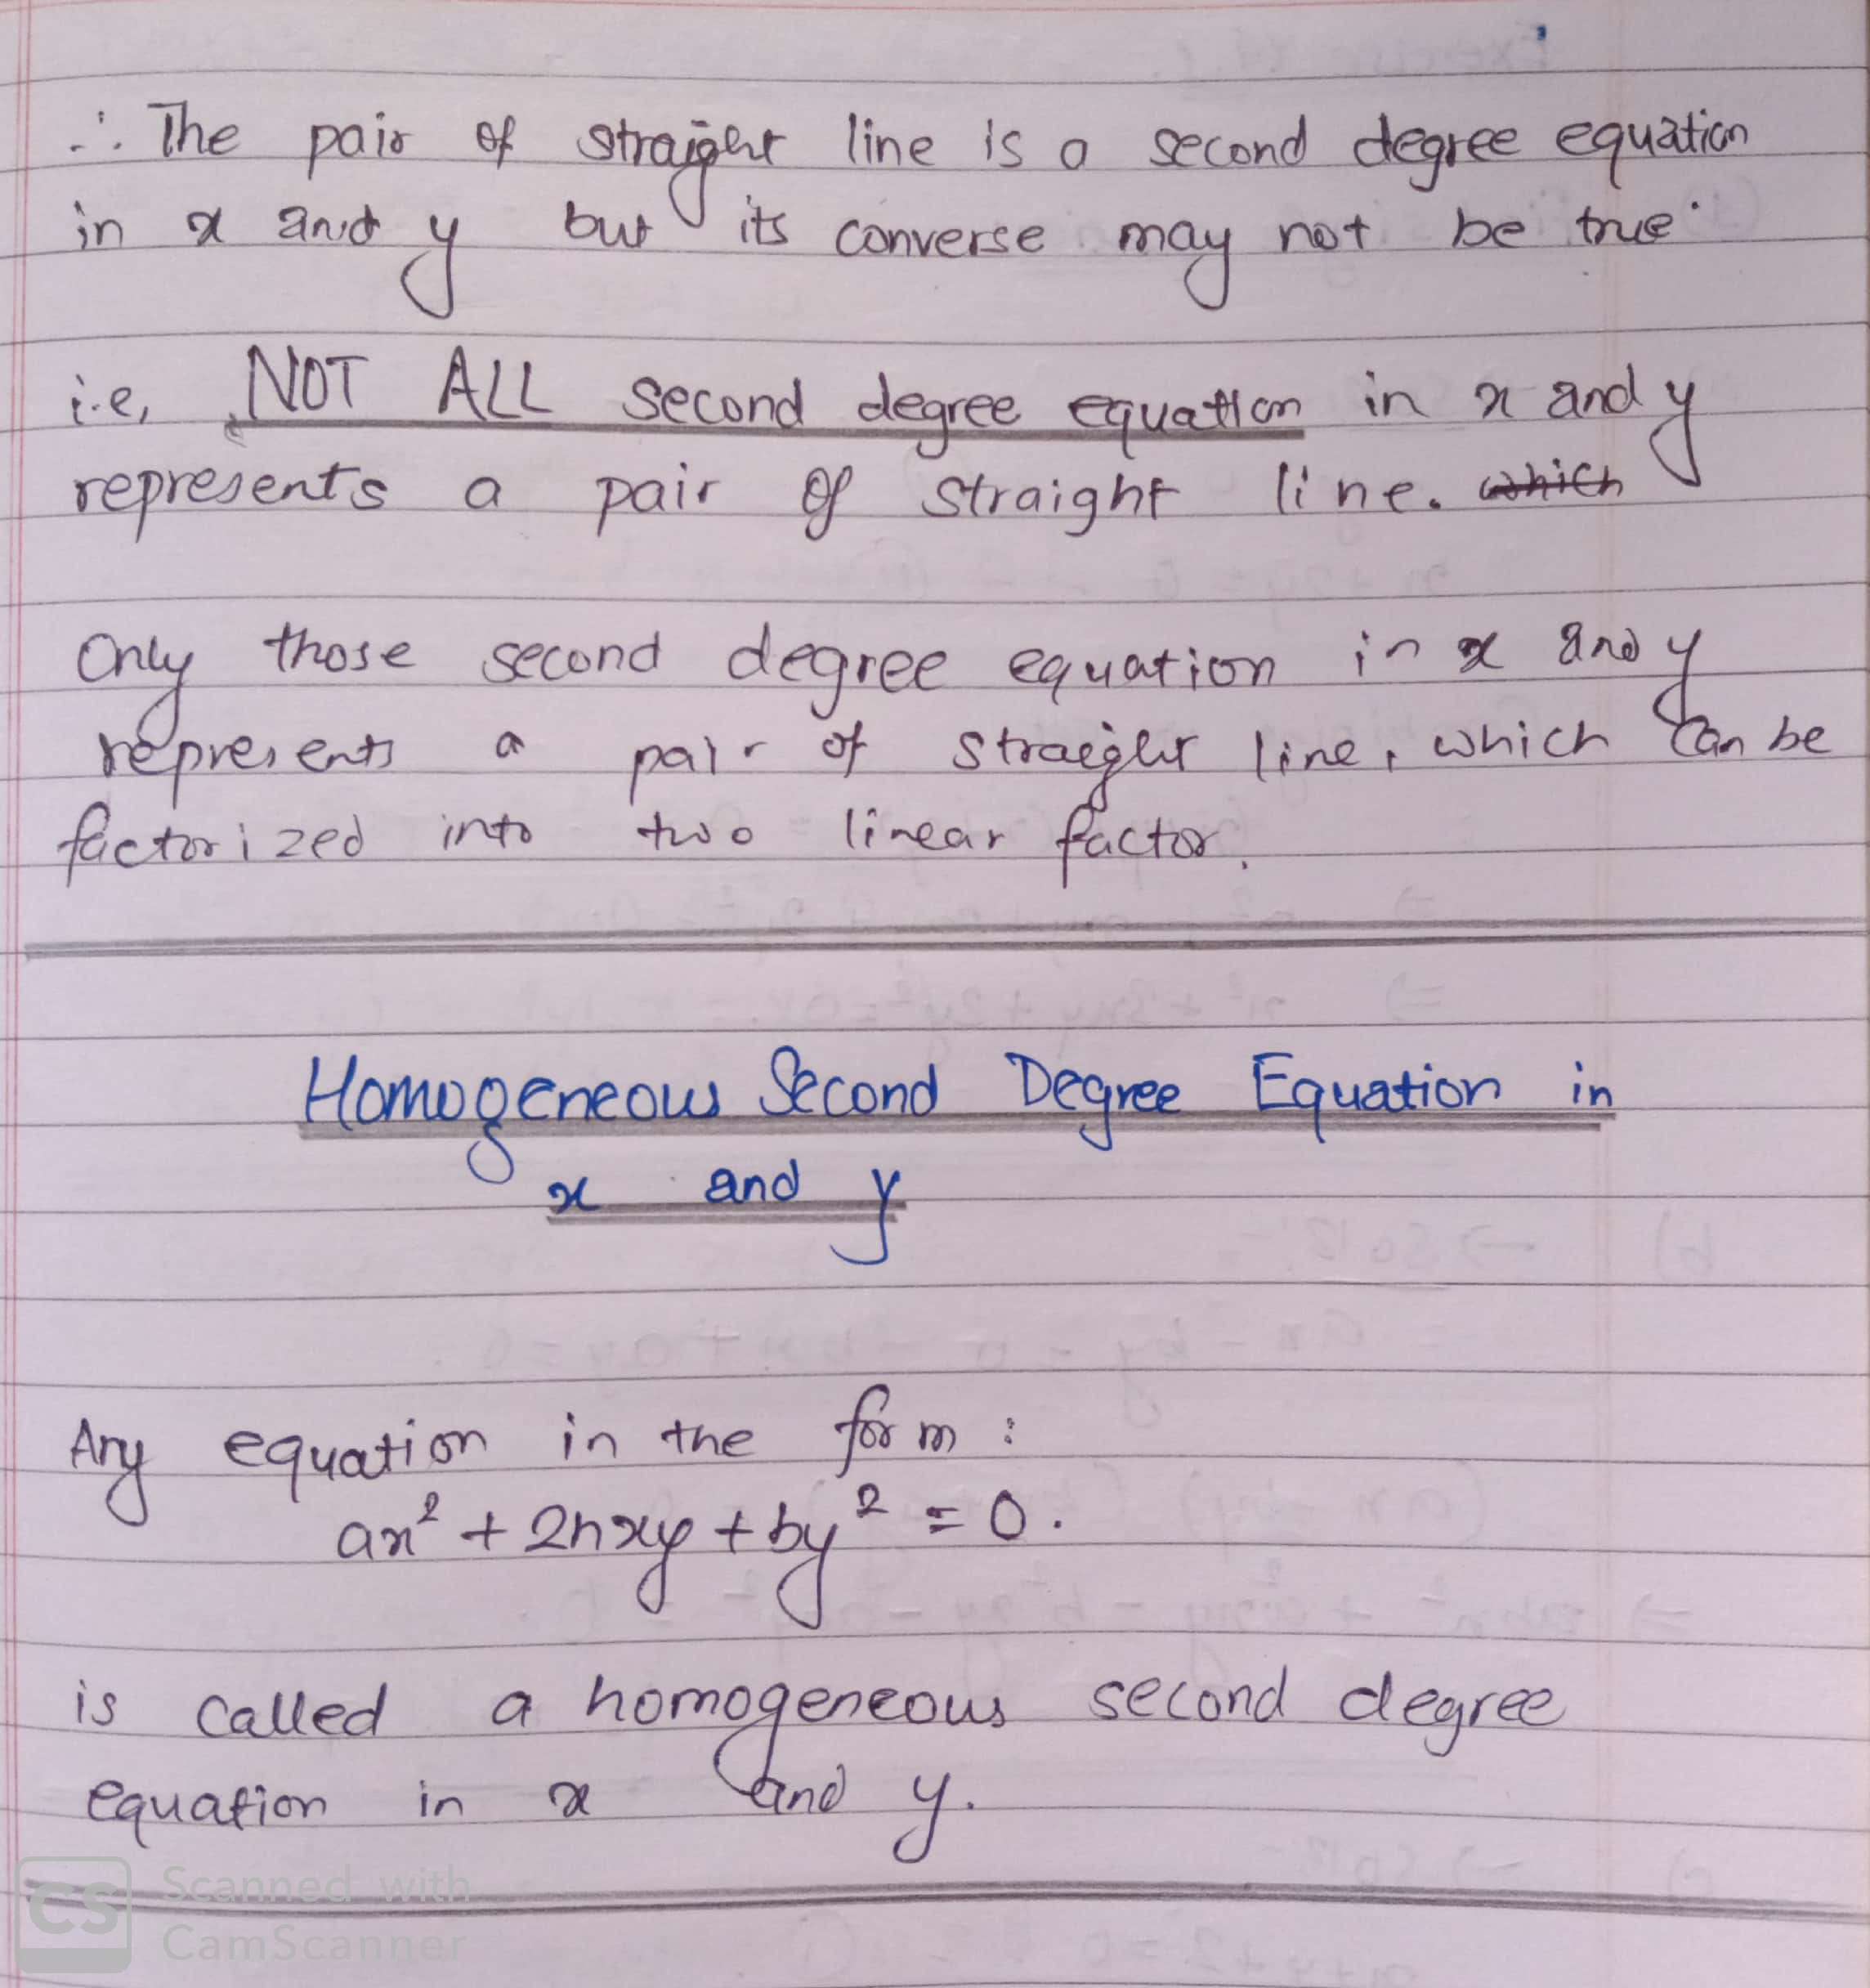 ∴ The pair of straight line is a second degree equation
in x and y but its converse may not be true.
i.e, NOT ALL second degree equation in x and y
represents a pair of straight line. which
Only those second degree equation in x and y
represents a pair of straight line, which can be
factorized into two linear factor.
Homogeneous Second Degree Equation in
x and y
Any equation in the form :
ax² + 2hxy + by² = 0.
is called a homogeneous second degree
equation in x and y.
CS Scanned with
CamScanner